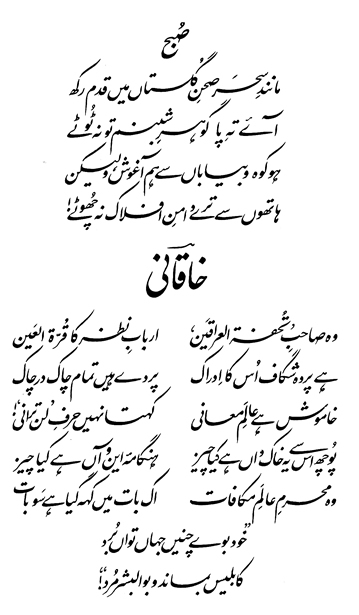 صُبح
مانندِ سحر صحنِ گلستاں میں قدم رکھ
آئے تہِ پا گوہرِ شبنم تو نہ ٹوٹے
ہو کوہ و بیاباں سے ہم آغوش، ولیکن
ہاتھوں سے ترے دامنِ افلاک نہ چھوٹے!
خاقانی
وہ صاحبِ 'تحفۃ العراقین' اربابِ نظر کا قُرّۃ العین
ہے پردہ شگاف اُس کا اِدراک پردے ہیں تمام چاک در چاک
خاموش ہے عالمِ معانی کہتا نہیں حرفِ 'لن ترانی'!
پوچھ اس سے یہ خاک داں ہے کیا چیز ہنگامۂ این و آں ہے کیا چیز
وہ محرمِ عالمِ مکافات اک بات میں کہہ گیا ہے سو بات
"خود بوے چنیں جہاں تواں بُرد
کابلیس بماند و بوالبشر مُرد!"